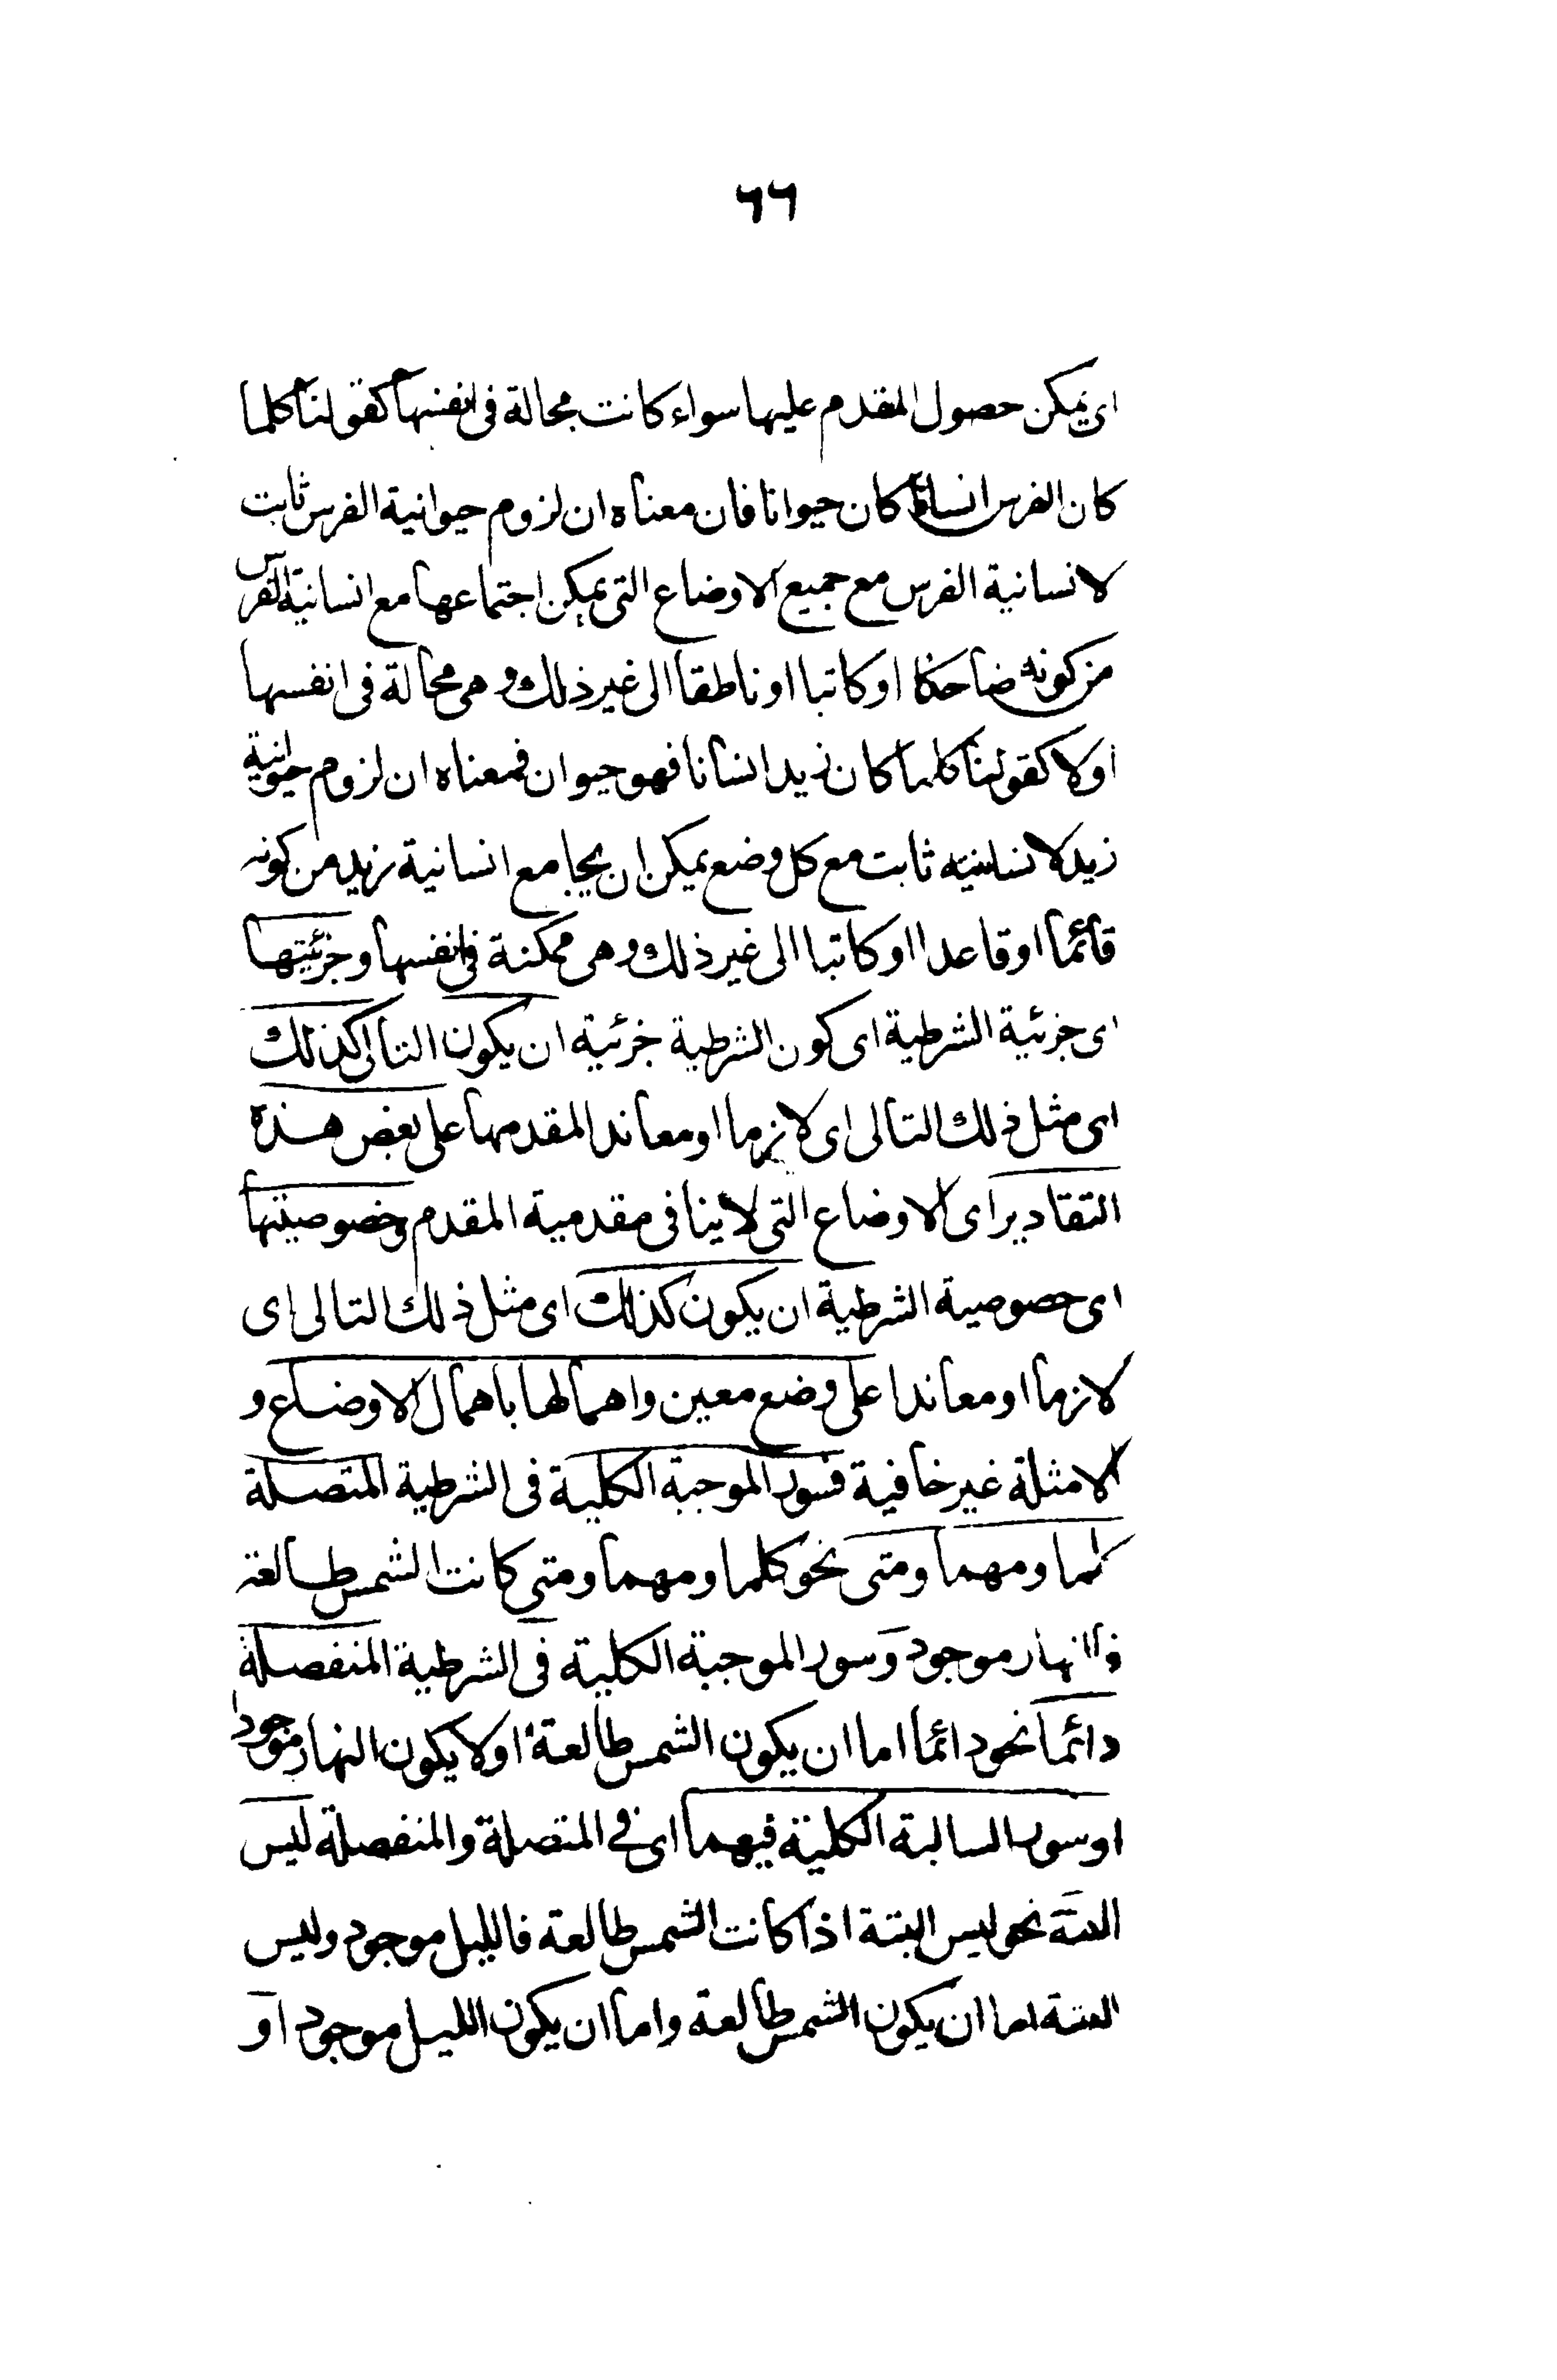 ٦٦
اى يمكن حصول المقدم عليها سواء كانت محالة فى انفسها كقولنا كلما
كان الفرس انسانا كان حيوانا فان معناه ان لزوم حيوانية الفرس ثابت
لانسانية الفرس مع جميع الاوضاع التى يمكن اجتماعها مع انسانية الفرس
من كونه ضاحكا او كاتبا او ناطقا الى غير ذلك و هى محالة فى انفسها
اولا كقولنا كلما كان زيد انسانا فهو حيوان فمعناه ان لزوم حيوانية
زيد لانسانيته ثابت مع كل وضع يمكن ان يجامع انسانية زيد من كونه
قائما او قاعدا او كاتبا الى غير ذلك و هى ممكنة فى انفسها و جزئيتها
اى جزئية الشرطية اى كون الشرطية جزئية ان يكون التالى كذلك
اى مثل ذلك التالى اى لازما او معاندا لمقدمها على بعض هذه
التقادير اى الاوضاع التى لا ينافى مقدمية المقدم و خصوصيتها
اى خصوصية الشرطية ان يكون كذلك اى مثل ذلك التالى اى
لازما او معاندا على وضع معين و اهمالها باهمال الاوضاع و
الامثلة غير خافية فسور الموجبة الكلية فى الشرطية المتصلة
كلما و مهما و متى نحو كلما و مهما و متى كانت الشمس طالعة
فالنهار موجود و سور الموجبة الكلية فى الشرطية المنفصلة
دائما نحو دائما اما ان يكون الشمس طالعة او لا يكون النهار موجودا
او سور السالبة الكلية فيهما اى فى المتصلة و المنفصلة ليس
البتة نحو ليس البتة اذا كانت الشمس طالعة فالليل موجود و ليس
البتة اما ان يكون الشمس طالعة و اما ان يكون الليل موجود او